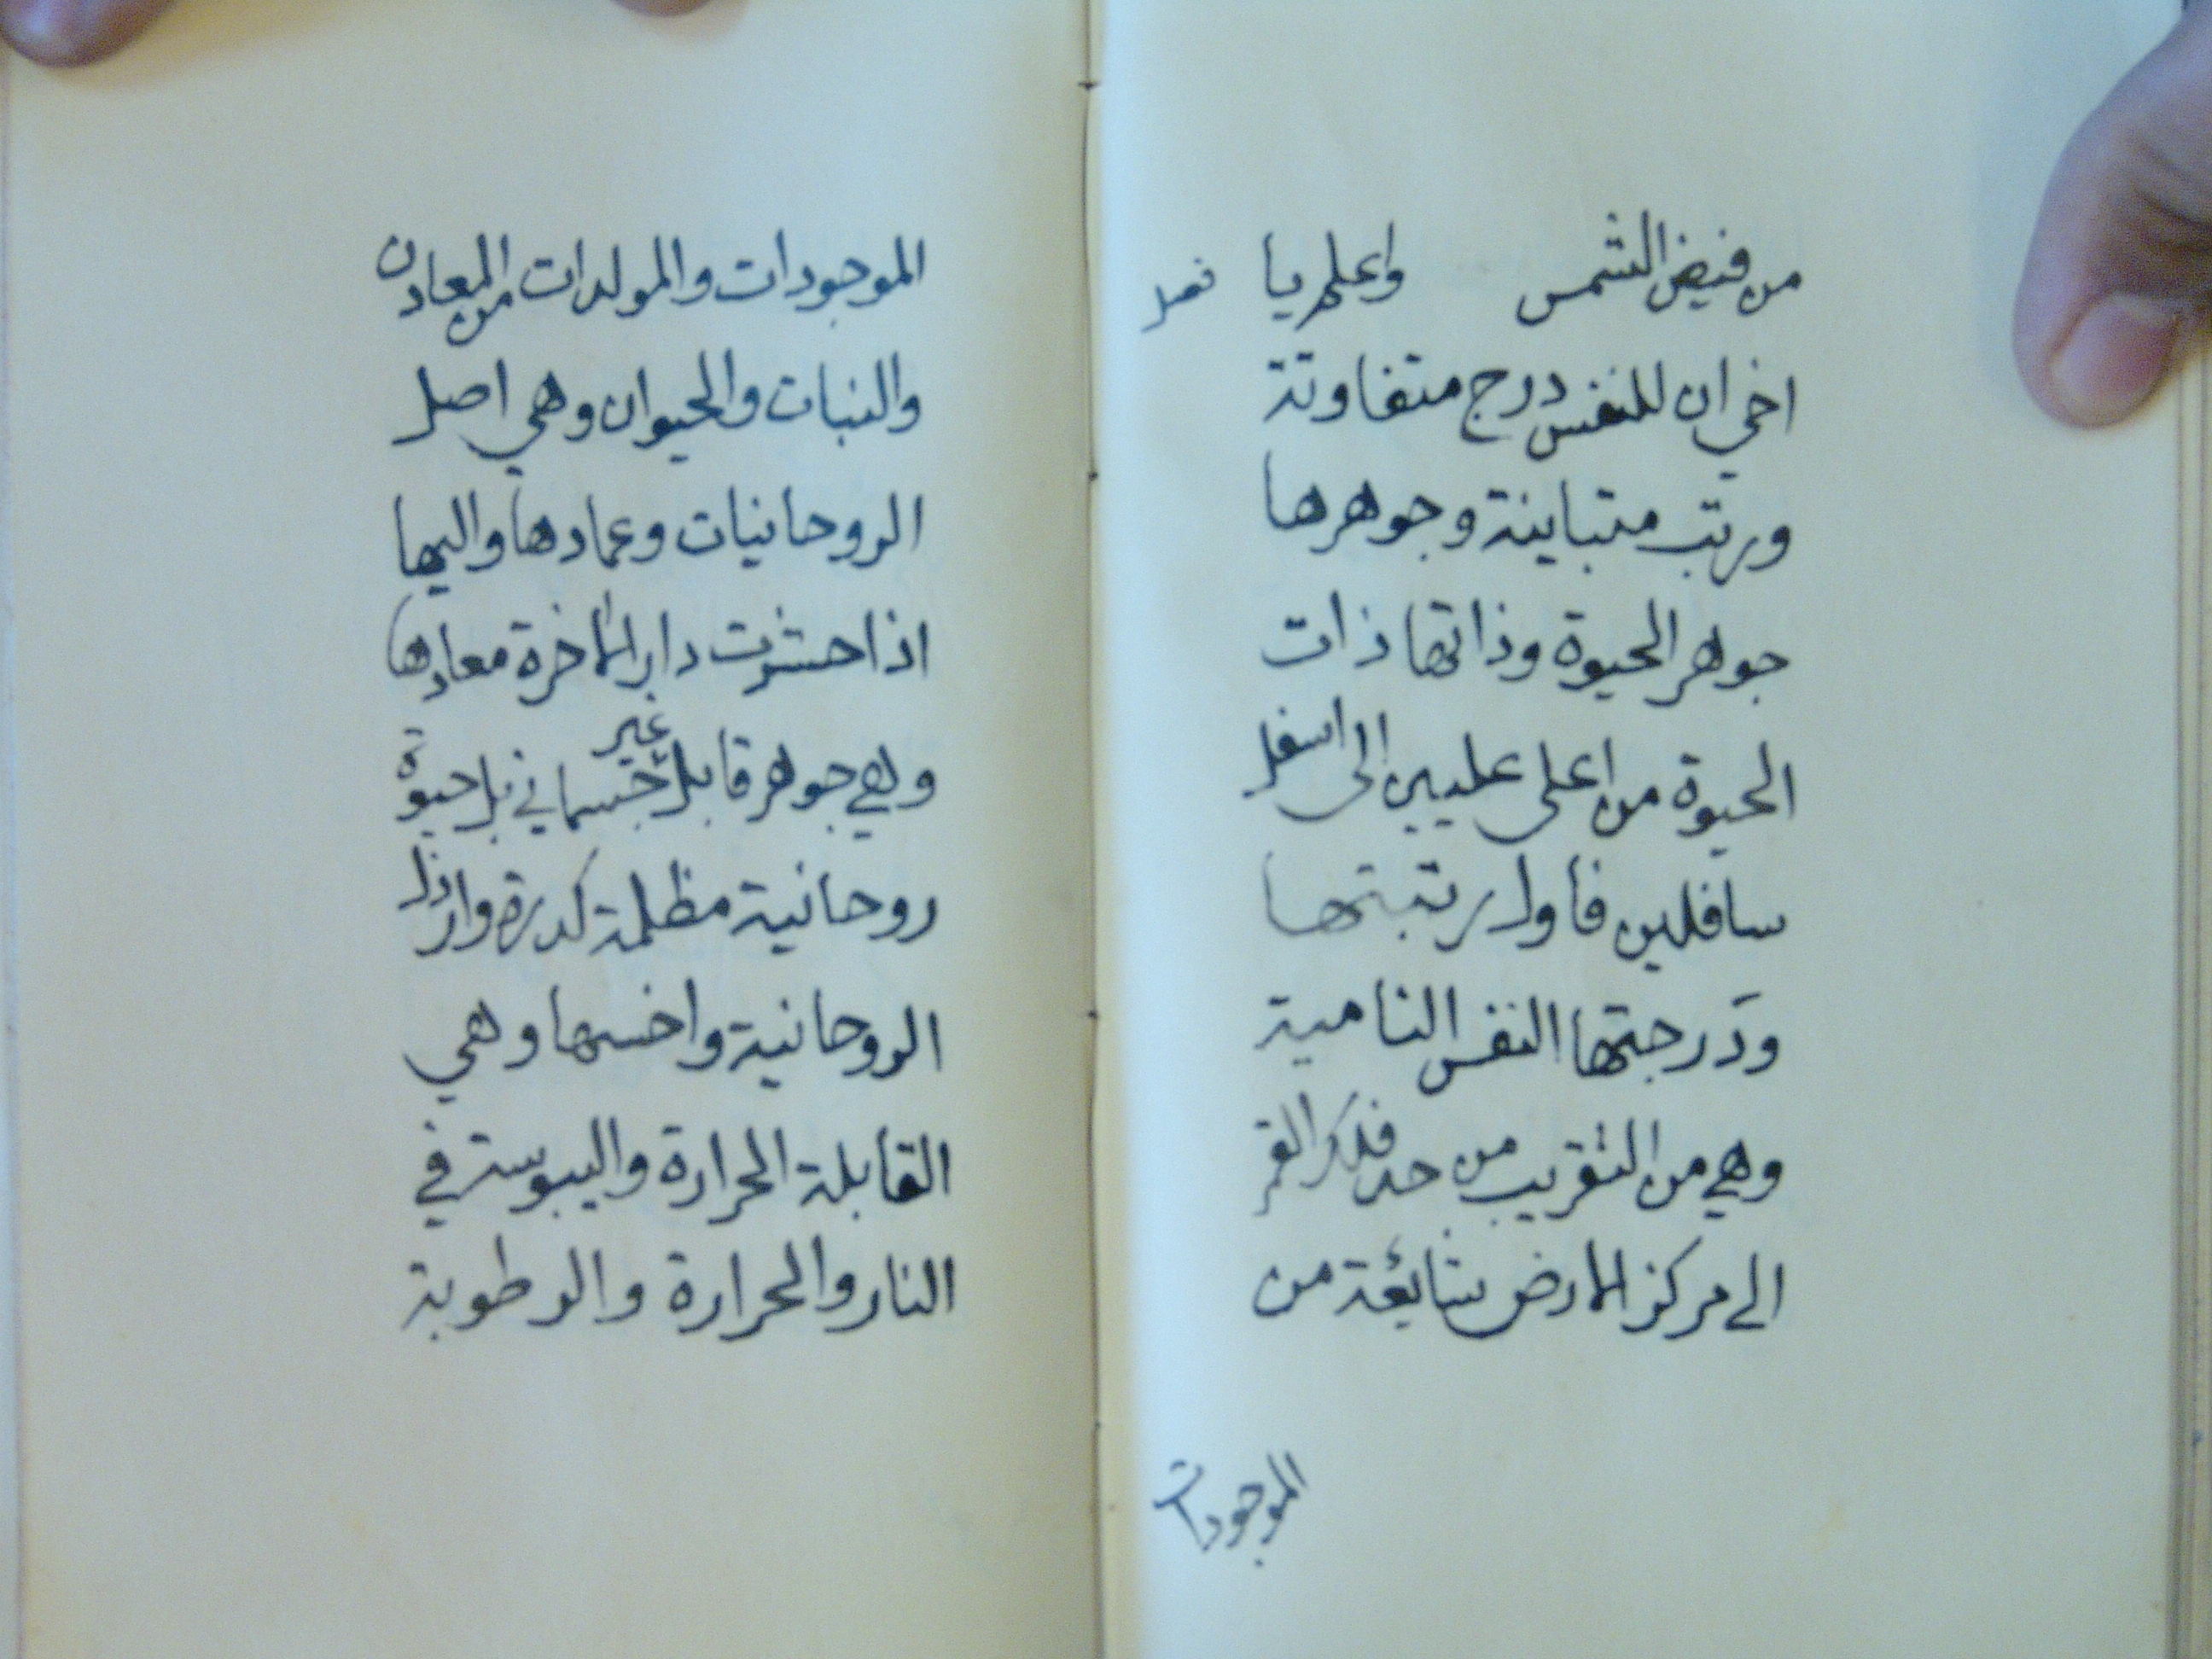 من فيض الشمس واعلم يا
فصل
اخي ان للنفس درج متفاوتة
ورتب متباينة وجوهرها
جوهر الحيوة وذاتها ذات
الحيوة من اعلى عليين الى اسفل
سافلين فاول رتبتها
ودرجتها النفس النامية
وهي من التقريب من حد فلك القمر
الى مركز الارض شائعة من
الموجودات
الموجودات والمولدات من المعادن
والنبات والحيوان وهي اصل
الروحانيات وعمادها واليها
اذا حشرت دار الاخرة معادها
وهي جوهر قابل غير جسماني بل حيوة
روحانية مظلمة كدرة وارذل
الروحانية واخسها وهي
القابلة الحرارة واليبوسة في
النار والحرارة والرطوبة